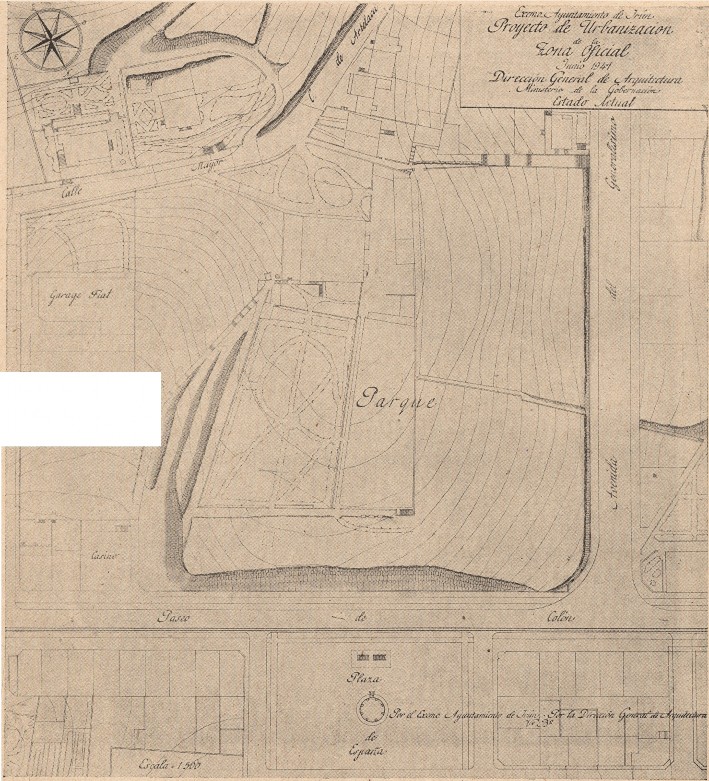 Excmo Ayuntamiento de Irún
Proyecto de Urbanización
de la
Zona Oficial
Junio 1941
Dirección General de Arquitectura
Ministerio de la Gobernación
Estado Actual
de Artelacu
Calle
Mayor
Generalísimo
del
Avenida
Garage Fiat
Parque
Casino
Paseo
de
Colón
Plaza
de
España
Por el Excmo Ayuntamiento de Irún
Por la Dirección General de Arquitectura
Escala - 1:500